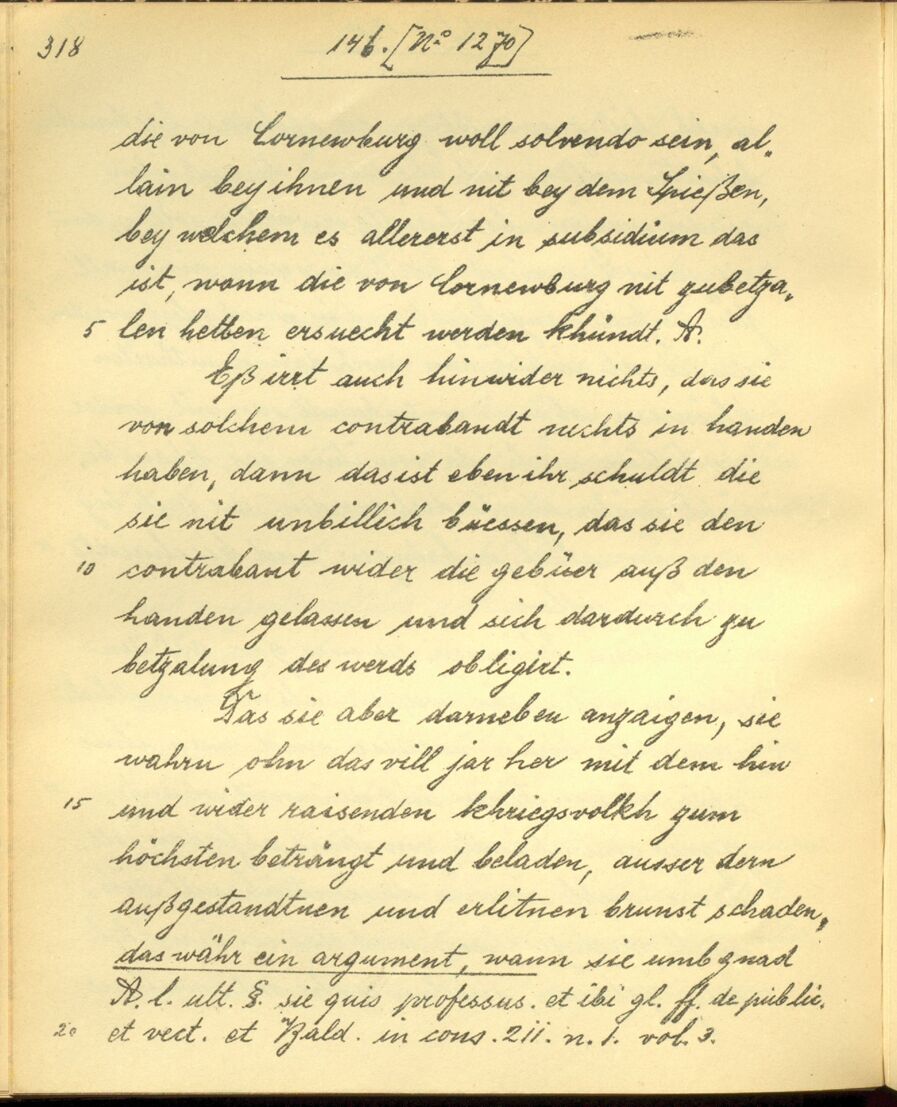 318
146. [No 1270]
die von Cornewburg woll solvendo sein, al„
lain bey ihnen und nit bey dem Spießen,
bey welchem es allererst in subsidium das
ist, wann die von Cornewburg nit zubetza„
5 len hetten ersuecht werden khündt. A.
Eß irrt auch hinwider nichts, das sie
von solchem contrabandt nichts in handen
haben, dann das ist eben ihr schuldt die
sie nit unbillich büessen, das sie den
10 contrabant wider die gebüer auß den
handen gelassen und sich dardurch zu
betzalung des werds obligirt.
Das sie aber darneben anzaigen, sie
wahrn ohn das vill jar her mit dem hin
15 und wider raisenden khriegsvolkh zum
höchsten beträngt und beladen, ausser dem
außgestandtnen und erlitnen brunst schaden„
das währ ein argument, wann sie umb gnad
A. l. ult. §. sie quis professus. et ibi gl. ff. de public.
20 et vect. et Bald. in cons. 211. n. 1. vol. 3.